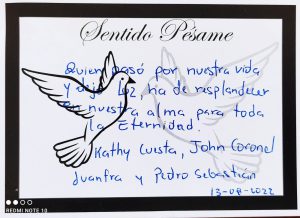 Sentido Pésame
Quien pasó por nuestra vida
y dejó luz, ha de resplandecer
en nuestra alma para toda
la Eternidad.
Kathy Cuesta, John Coronel
Juanfra y Pedro Sebastián
13-08-2022
REDMI NOTE 10